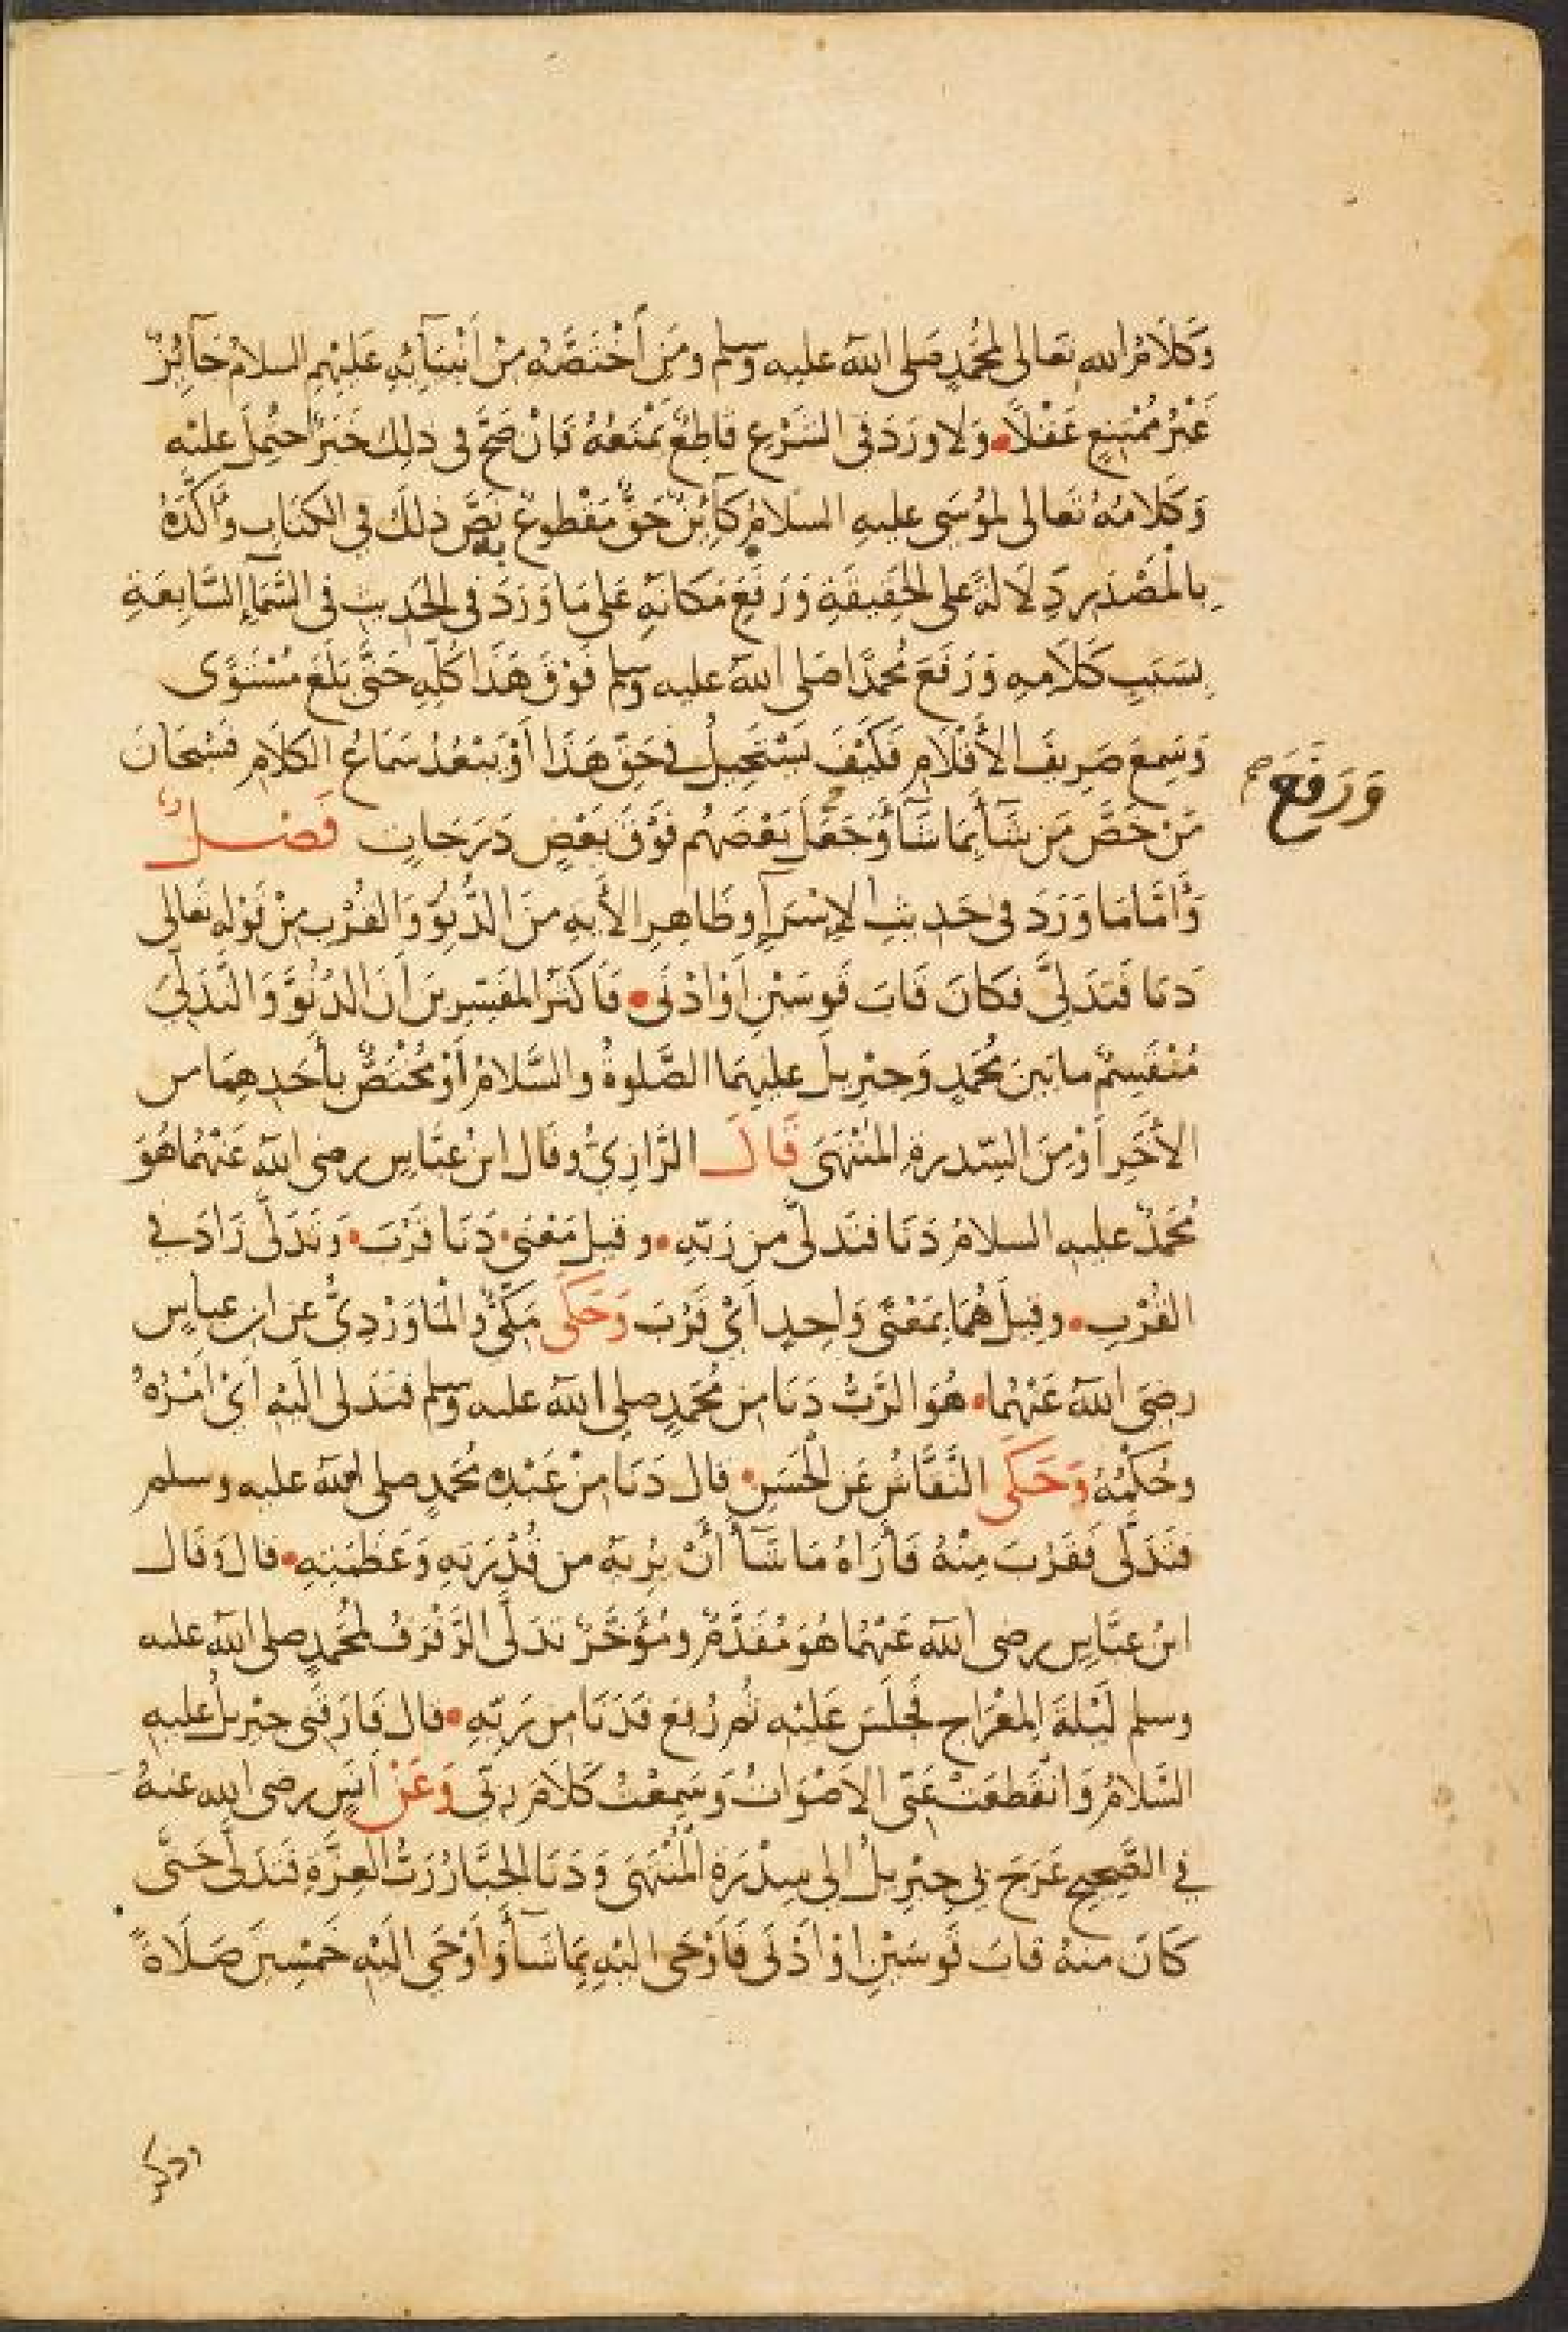 وَكَلَامُ الله تعالى لمُحَمَّدٍ صَلى اللهُ عليه وسلم ومَنِ اَخْتَصَّهُ مِنْ اَنْبِيَآئِهِ عَلَيْهِمِ السلامُ جَآئِزٌ
غَيْرُ مُمْتَنِعٍ عَقْلًا وَلا وَرَدَ فى الشَرْعِ قَاطِعٌ يَمْنَعُهُ فَاِنْ صَحَّ فى ذلِك خَبَرٌ احتُمِلَ عليْه
وَكَلَامُهُ تَعالى لمُوسَى عليهِ السلامُ كَآئِنٌ حَقٌّ مَقْطوعٌ به نَصَّ ذلكَ فى الكتَابِ وَاَكَّدَهُ
بِالْمَصْدَرِ دِلَالةً على الحَقِيقَةِ وَرَفَعَ مَكَانَهُ عَلى مَا وَرَدَ فى الحَديثِ فى السَّمآءِ السَّابِعَةِ
بِسَبَبِ كَلَامِهِ وَرَفَعَ مُحمَّدًا صَلى اللهُ عليه وسلم فَوْقَ هَذَا كُلِّهِ حَتَّى بَلَغَ مُسْتَوًى
وَسَمِعَ صَرِيفَ الأَقْلَامِ فَكَيْفَ يَسْتَحِيلُ فى حَقِّ هَذَا أوْ يَبْعُدُ سَمَاعُ الكلَامِ فَسُبْحَانَ
وَرَفَعَ صح
مَنْ خَصَّ مَن شَآءَ بِمَا شَآءَ وَجَعَلَ بَعْضَهُم فَوْقَ بَعْضٍ دَرَجَاتٍ فَصْلٌ
وَأمَّا مَا وَرَدَ فى حَدِيثِ الاِسْرَآءِ وظَاهِرِ الأيَةِ مِنَ الدُّنُوِّ وَالقُرْبِ مِنْ قَوْلِهِ تَعالى
دَنَا فَتَدَلَّى فكانَ قَابَ قَوسَيْنِ اَوْ اَدْنَى فَاَكثَرُ المفَسِّرِينَ اَنَّ الدُّنُوَّ وَالتَّدَلِّىَ
مُنْقَسِمٌ ما بَيْنَ مُحَمَّدٍ وَجِبْرِيلَ عليهِمَا الصَّلوةُ والسَّلَامُ اَوْ مُخْتَصٌّ بِأَحَدِهِمَا من
الأخَرِ اَوْ مِنَ السِّدرةِ المُنْتَهَى قَالَ الرَّازِىُّ وقَال ابنُ عبَّاسٍ رضى اللهُ عَنْهُمَا هُوَ
مُحَمَّدٌ عليه السلامُ دَنَا فتَدَلَّى من رَبِّهِ وقيلَ مَعْنَى دَنَا قَرُبَ وَتَدَلَّى زَادَ فى
القُرْبِ وقيلَ هُمَا بِمَعْنًى وَاحِدٍ اَىْ قَرُبَ وَحَكَى مَكِّىٌّ وَالْمَاوَرْدِىُّ عن ابن عباسٍ
رضىَ اللهُ عَنْهُمَا هُوَ الرَّبُّ دَنَا مِن مُحَمَّدٍ صلى اللهُ عليه وسلم فتَدَلى الَيْهِ اَىْ اَمْرُهُ
وحُكْمُهُ وَحَكَى النَّقَّاشُ عَنِ الْحَسَنِ قال دَنَا مِنْ عَبْدِهِ مُحَمَّدٍ صلى اللهُ عليه وسلم
فتَدَلَّى فَقَرُبَ مِنْهُ فَأرَاهُ مَا شَآءَ أنْ يُرِيَهُ من قُدْرَتِهِ وَعَظَمَتِهِ قال وَقَال
ابنُ عبَّاسٍ رضى اللهُ عَنْهُمَا هُوَ مُقَدَّمٌ ومُؤَخَّرٌ تَدَلَّى الرَّفْرَفُ لمُحَمَّدٍ صلى اللهُ عليه
وسلم لَيْلةَ المِعْرَاجِ فَجَلَسَ عَلَيْهِ ثُم رُفِعَ فَدَنَا مِن رَبِّهِ قال فَارَقَنِى جِبْريلُ عليهِ
السَّلَامُ وَانقَطَعَتْ عَنِّى الاَصْوَاتُ وَسَمِعْتُ كَلَامَ رَبِّى وَعَنْ اَنَسٍ رضى الله عنهُ
فى الصَّحِيحِ عَرَجَ بِى جِبْرِيلُ الى سِدْرَةِ المُنْتَهَى وَدَنَا الجَبَّارُ رَبُّ العِزَّةِ فَتَدَلَّى حَتَّى
كَانَ منهُ قابَ قَوسَيْنِ اوْ اَدْنَى فَأَوْحَى اليْهِ بِمَا شَآءَ وَاَوْحَى الَيْهِ خَمْسِينَ صَلَاةً
وذكر